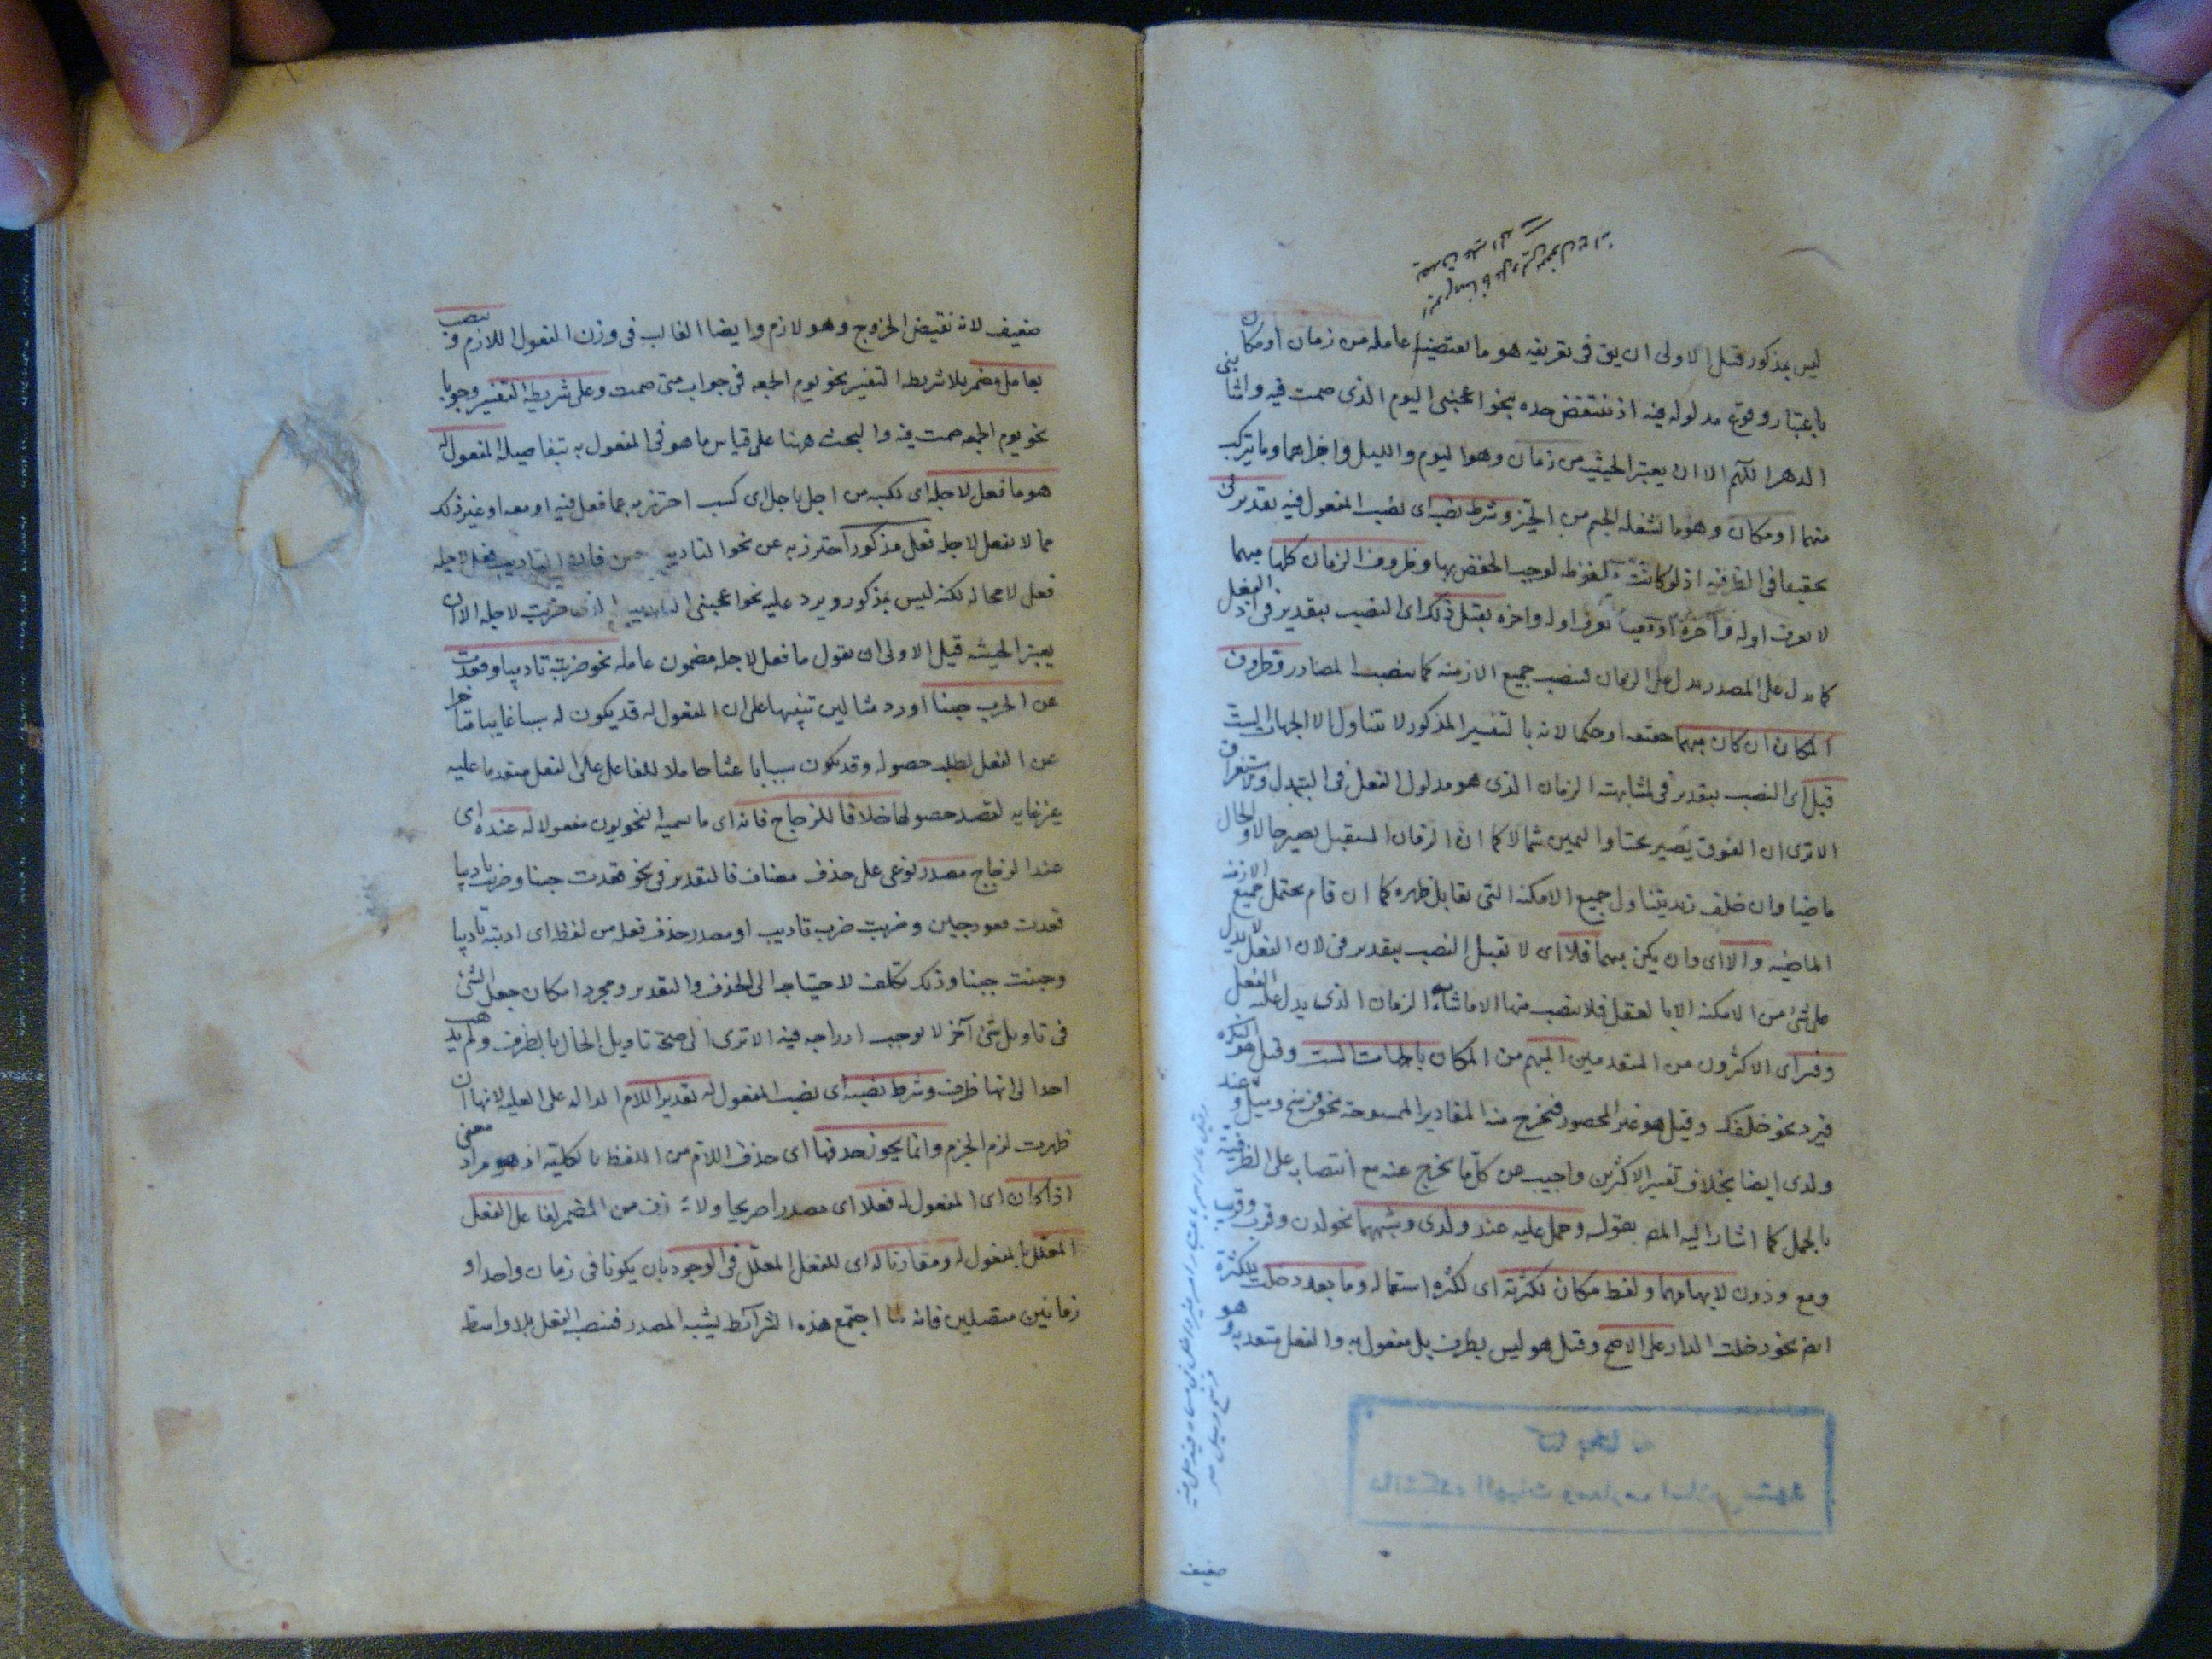 ليس بمذكور قيل الاولى ان يق فى تعريفه هو ما يقتضيه عامله من زمان او مكان
باعتبار وقوع مدلوله فيه اذ ينتقض حده بنحو اعجبنى اليوم الذى صمت فيه
الدهر اللهم الا ان يعتبر الحيثيه من زمان وهو اليوم والليل واجزاهما وما يتركب
منهما او مكان وهو ما يشغله الجسم من الحيز وشرط نصبه اى نصب المفعول فيه تقدير فى
تحقيقا فى الظرفيه اذ لو كانت ملفوظه لوجب الخفض بها وظروف الزمان كلها مبهما
لا يعرف اوله وآخره او معينا يعرف اوله واخره يقبل ذلك اى النصب بتقدير فى اذ الفعل
كما يدل على المصدر يدل على الزمان فينصب جميع الازمنه كما ينصب المصادر وظروف
المكان ان كان مبهما حقيقه او حكما لانه بالتفسير المذكور لا يتناول الا الجهات الست
قبل اى النصب بتقدير فى لمشابهته الزمان الذى هو مدلول الفعل فى التبدل والاستغراق
الا ترى ان الفوق يصير تحتا واليمين شمالا كما ان الزمان المستقبل يصير حالا والحال
ماضيا وان خلف زيد يتناول جميع الامكنه التى تقابل ظهره كما ان قام يحتمل جميع الازمنه
الماضيه والا اى وان لم يكن مبهما فلا اى لا يقبل النصب بتقدير فى لان الفعل لا يدل
على شئ من الامكنه الا بالعقل فلا ينصب منها الا ما شابه الزمان الذى يدل عليه الفعل
وفسر اى الاكثرون من المتقدمين المبهم من المكان بالجهات الست وقيل هو النكره
فيرد نحو خلفك وقيل هو غير المحصور فيخرج منه المقادير الممسوحة نحو فرسخ وميل وعند
ولدى ايضا بخلاف تفسير الاكثرين واجيب عن كل ما يخرج عنه مع انتصابه على الظرفية
بالحمل كما اشار اليه المص بقوله وحمل عليه عند ولدى وشبههما نحو لدن وقرب
ومع ودون لابهامهما ولفظ مكان لكثرته اى لكثره استعماله وما بعد دخلت للكثرة
ايضا نحو دخلت الدار على الاصح وقيل هو ليس بظرف بل مفعول به والفعل متعد به وهو
ضعيف
ضعيف لانه نقيض الخروج وهو لازم وايضا الغالب فى وزن الفعول اللازم وينصب
بعامل مضمر بلا شريطه التفسير نحو يوم الجمعه فى جواب متى صمت وعلى شريطه التفسير وجوبا
نحو يوم الجمعه صمت فيه والبحث ههنا على قياس ما هو فى المفعول به بتفاصيله المفعول له
هو ما فعل لاجله اى لكسبه من اجل ياجل اى كسب احترز به عما فعل فيه او معه او غير ذلك
مما لا يفعل لاجله فعل مذكور احترز به عن نحو التاديب حسن فان التاديب يفعل لاجله
فعل لا محاله لكنه ليس بمذكور ويرد عليه نحو اعجبنى التاديب الذى ضربت لاجله الا ان
يعتبر الحيثيه قيل الاولى ان يقول ما فعل لاجله مضمون عامله نحو ضربته تاديبا وقعدت
عن الحرب جبنا اورد مثالين تنبيها على ان المفعول له قد يكون له سببا غائيا متاخرا
عن الفعل يطلب حصوله وقد يكون سببا باعثا حاملا للفاعل على الفعل متقدما عليه
غير غايه لقصد حصولها خلافا للزجاج فانه اى ما يسميه النحويون مفعولا له عنده اى
عند الزجاج مصدر نوعى على حذف مضاف فالتقدير فى نحو قعدت جبنا وضربت تاديبا
قعدت قعود جبن وضربت ضرب تاديب او مصدر حذف فعله من لفظه اى ادبته تاديبا
وجبنت جبنا وذلك تكلف لاحتياجه الى الحذف والتقدير ومجرد امكان جعل الشئ
فى تاويل شئ آخر لا يوجب ادراجه فيه الا ترى الى صحة تاويل الحال بالظرف ولم يذهب
احد الى انها ظرف وشرط نصبه اى نصب المفعول له تقدير اللام الداله على العليه لانها ان
ظهرت لزم الجر وانما يجوز حذفها اى حذف اللام من اللفظ بالكليه اذ هو مراد معنى
اذا كان اى المفعول له فعلا اى مصدرا صريحا ولا من المضمر لفاعل الفعل
المعلل بالمفعول له ومقارنا له اى للفعل المعلل فى الوجود بان يكونا فى زمان واحد او
زمانين متصلين فانه لما اجتمع هذه الشرائط يشبه المصدر فينصب الفعل بلا واسطه